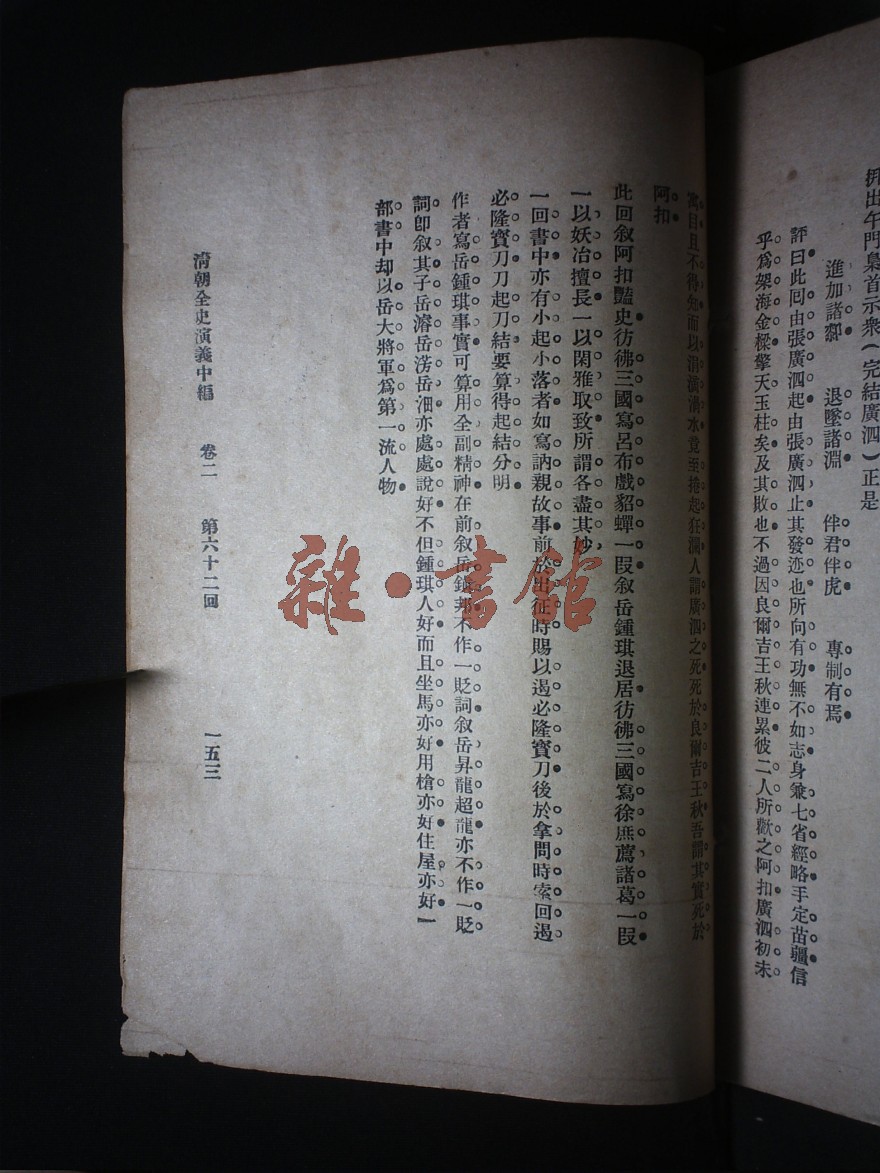 挷出午門梟首示衆(完結廣泗)正是
進加諸厀 退墜諸淵 伴君伴虎 專制有焉
評曰此回由張廣泗起由張廣泗止其發迹也所向有功無不如志身兼七省經略手定苗疆信
乎爲架海金樑擎天玉柱矣及其敗也不過因良爾吉王秋連累彼二人所歡之阿扣廣泗初未
寓目且不得知而以涓滴水竟至捲起狂瀾人謂廣泗之死死於良爾吉王秋吾謂其實死於
阿扣
此回叙阿扣豔史彷彿三國寫呂布戲貂蟬一段叙岳鍾琪退居彷彿三國寫徐庶薦諸葛一段
一以妖冶擅長一以閑雅取致所謂各盡其妙
一回書中亦有小起小落者如寫訥親故事前於出征時賜以遏必隆寳刀後於拿問時索回遏
必隆寳刀刀起刀結要算得起結分明
作者寫岳鍾琪事實可算用全副精神在前叙岳鎮邦不作一貶詞叙岳昇龍超龍亦不作一貶
詞卽叙其子岳濬岳淓岳沺亦處處說好不但鍾琪人好而且坐馬亦好用槍亦好住屋亦好一
部書中却以岳大將軍爲第一流人物
清朝全史演義中編 卷二 第六十二回 一五三
雜·書館